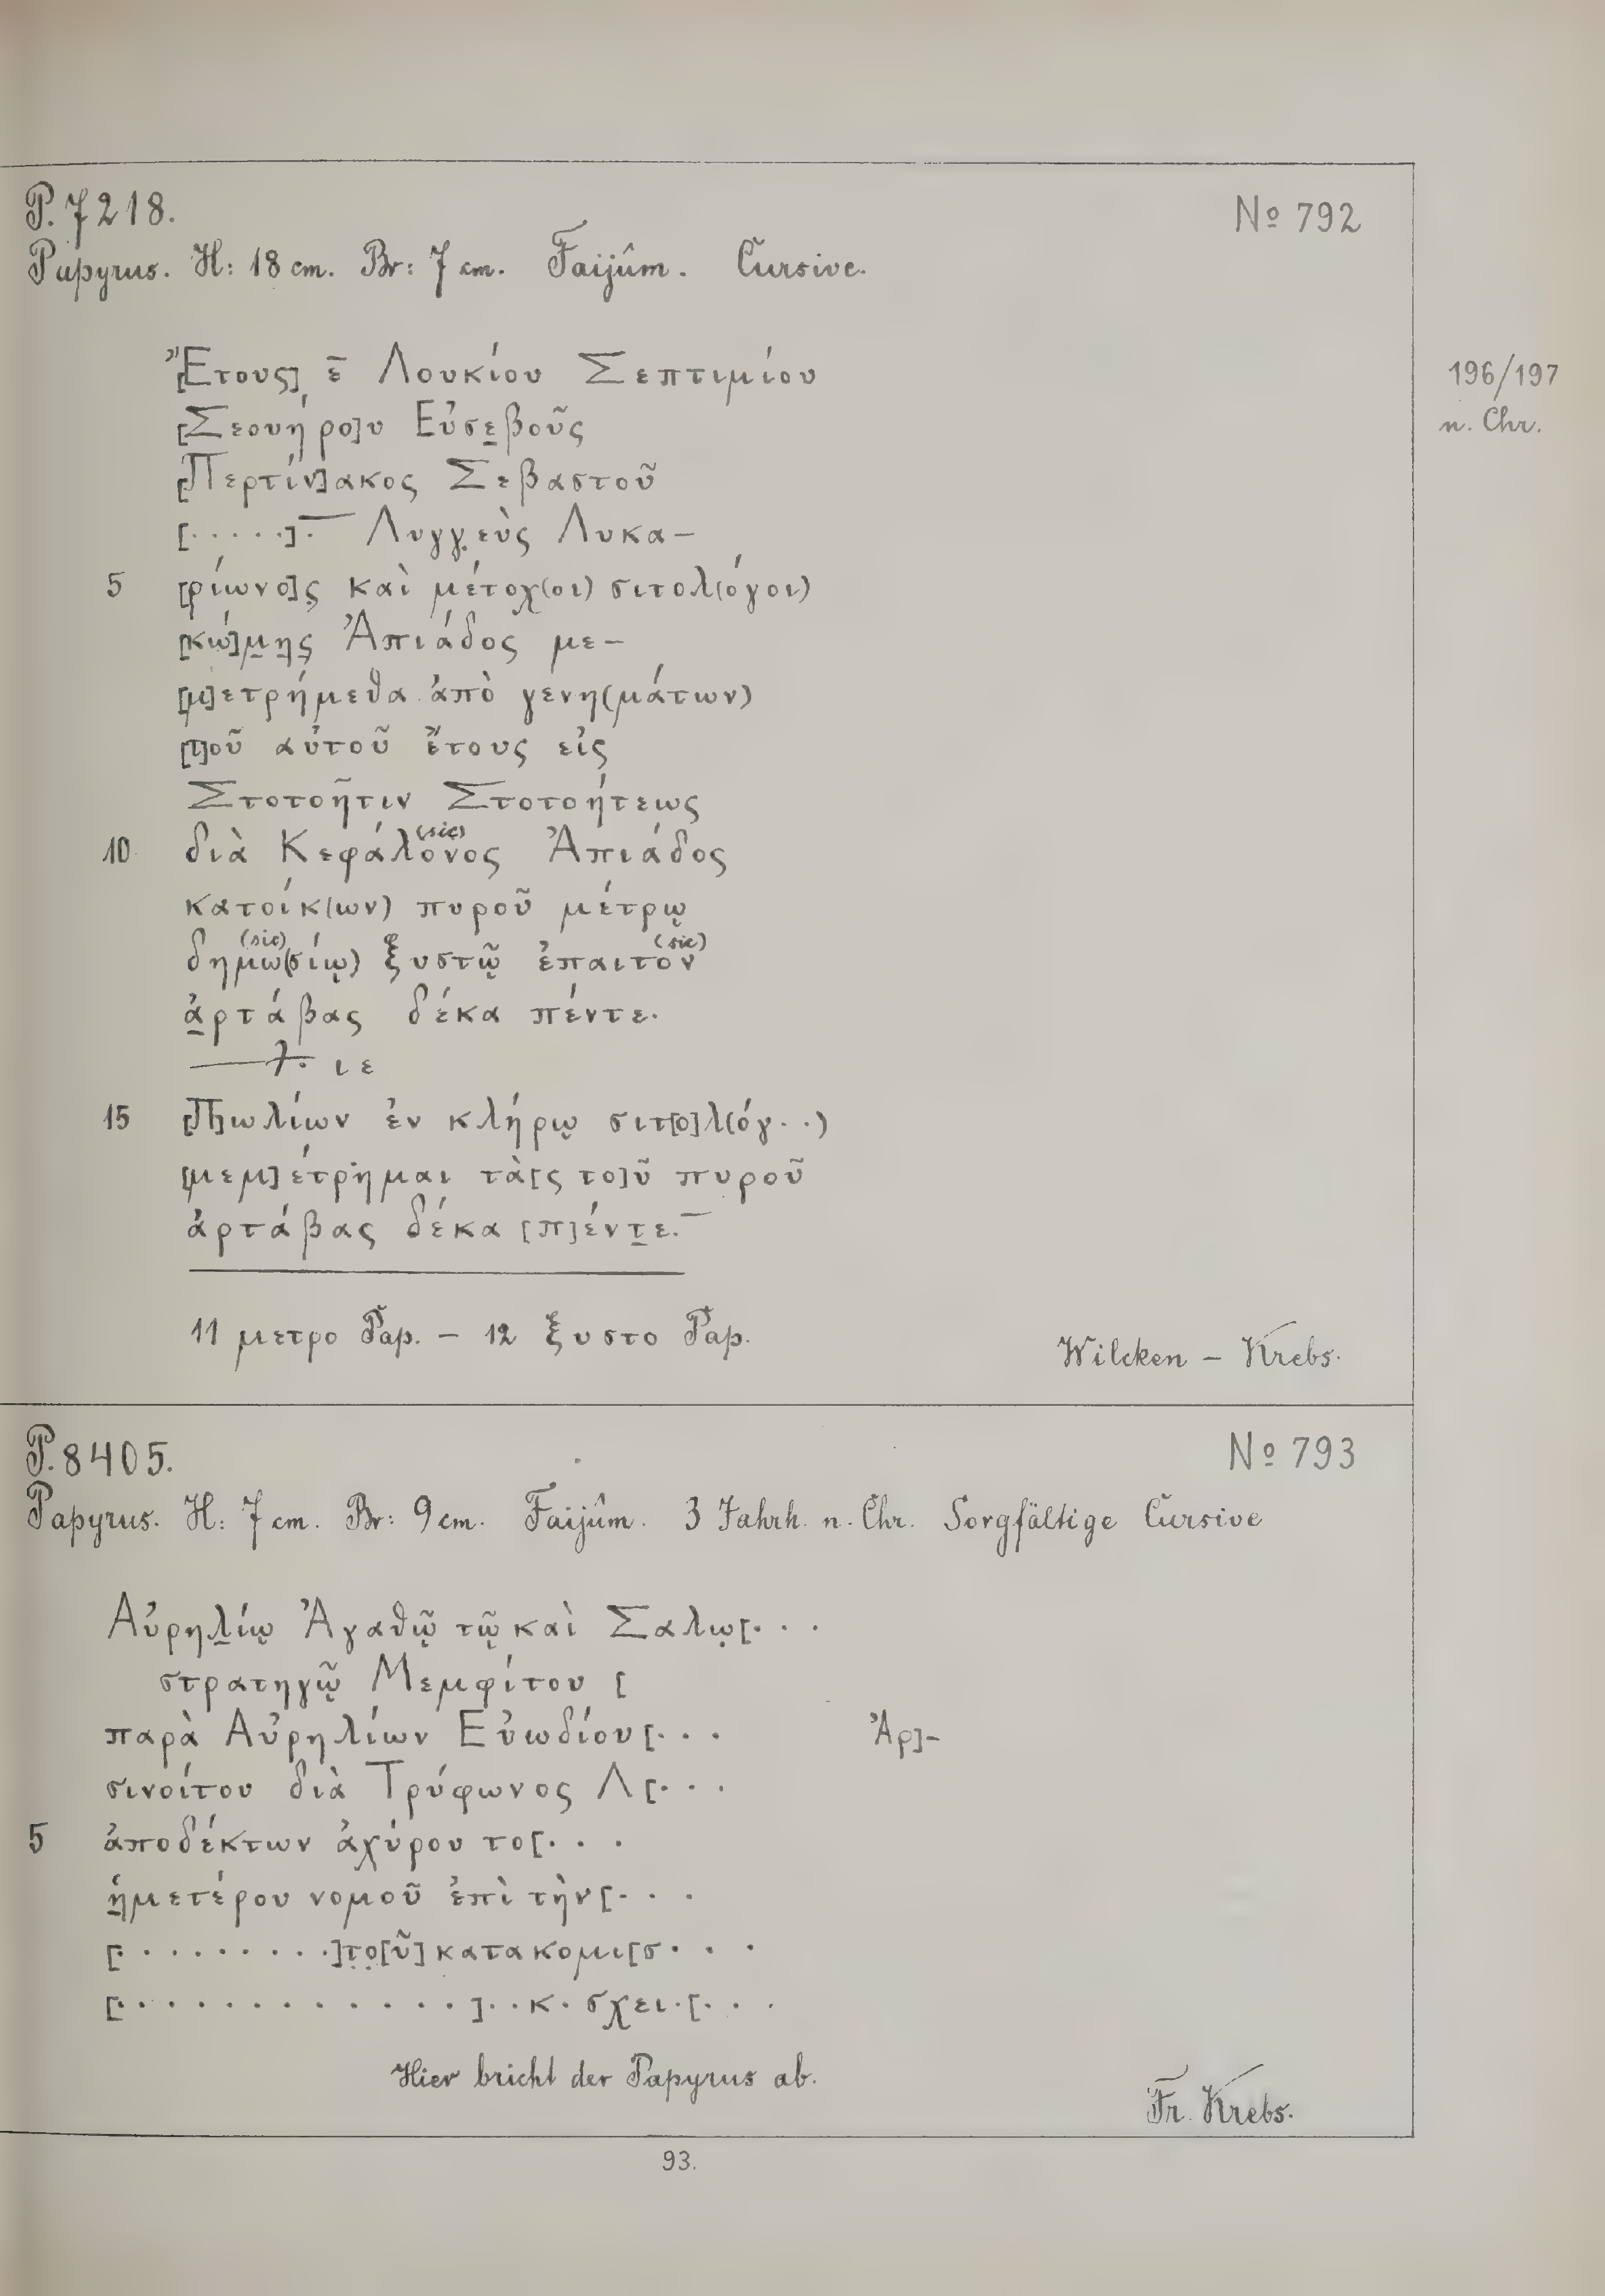 P. 7218.
No 792
Papyrus. H: 18 cm. Br: 7 cm. Faijûm. Cursive.
[Ἔτους] ε̄ Λουκίου Σεπτιμίου
196/197
n. Chr.
[Σεουήρο]υ Εὐσεβοῦς
[Περτίν]ακος Σεβαστοῦ
[·····]·‾ Λυγγεὺς Λυκα-
5 [ρίωνο]ς καὶ μέτοχ(οι) σιτολ(όγοι)
[κώ]μης Ἀπιάδος με-
[μ]ετρήμεθα ἀπὸ γενη(μάτων)
[τ]οῦ αὐτοῦ ἔτους εἰς
Στοτοῆτιν Στοτοήτεως
10 διὰ Κεφάλονος (sic) Ἀπιάδος
κατοίκ(ων) πυροῦ μέτρῳ
δημω(σίῳ) (sic) ξυστῷ ἐπαιτον (sic)
ἀρτάβας δέκα πέντε.
ιε
15 [Π]ωλίων ἐν κλήρῳ σιτ[ο]λ(όγ··)
[μεμ]έτρημαι τὰ[ς το]ῦ πυροῦ
ἀρτάβας δέκα [π]έντε.‾
11 μετρο Pap. – 12 ξυστο Pap.
Wilcken – Krebs.
P. 8405.
No 793
Papyrus. H: 7 cm. Br: 9 cm. Faijûm. 3 Jahrh. n. Chr. Sorgfältige Cursive
Αὐρηλίῳ Ἀγαθῷ τῷ καὶ Σαλω[···
στρατηγῷ Μεμφίτου [
παρὰ Αὐρηλίων Εὐωδίου[··· Ἀρ]-
σινοίτου διὰ Τρύφωνος Λ[···
5 ἀποδέκτων ἀχύρου το[···
ἡμετέρου νομοῦ ἐπὶ τὴν[···
[·········]το[ῦ] κατακομι[σ···
[·············]··κ· σχει·[···
Hier bricht der Papyrus ab.
Fr. Krebs.
93.